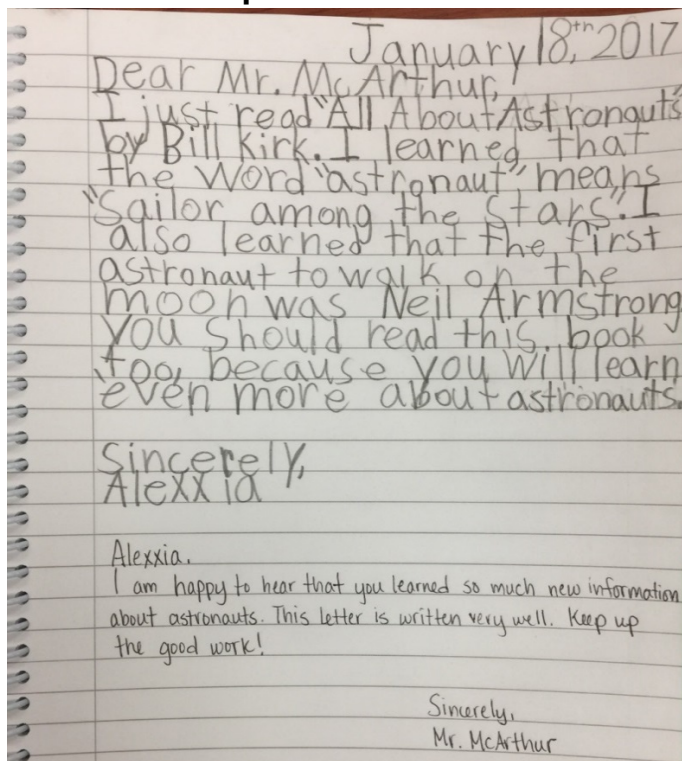 January 18,th 2017
Dear Mr. McArthur,
I just read "All About Astronauts"
by Bill Kirk. I learned that
the word "astronaut" means
"Sailor among the stars". I
also learned that the first
astronaut to walk on the
moon was Neil Armstrong
you should read this book
too, because you will learn
even more about astronauts.
Sincerely,
Alexxia
Alexxia,
I am happy to hear that you learned so much new information
about astronauts. This letter is written very well. Keep up
the good work!
Sincerely,
Mr. McArthur